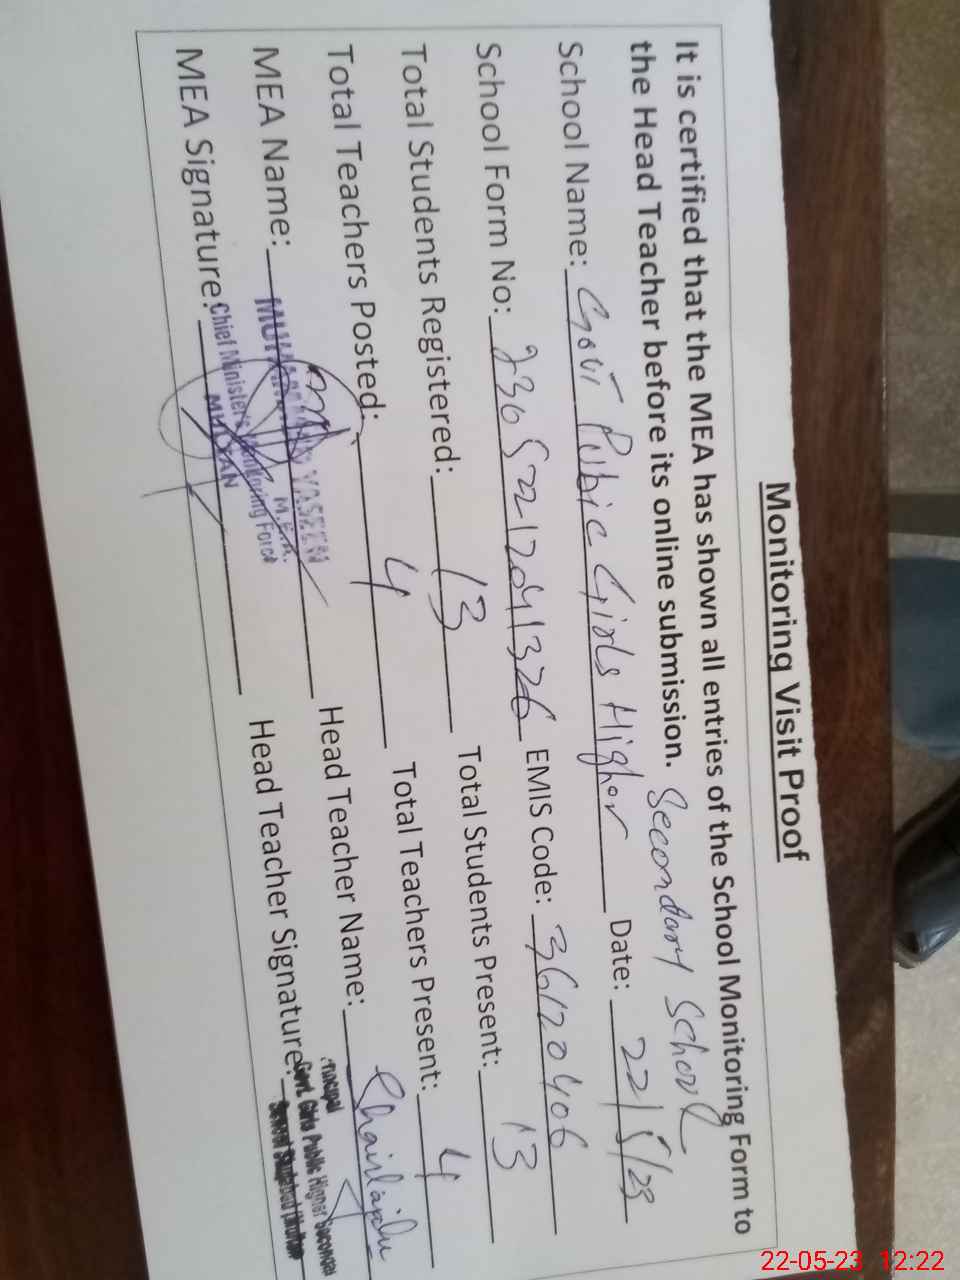 Monitoring Visit Proof
It is certified that the MEA has shown all entries of the School Monitoring Form to
the Head Teacher before its online submission. Secondary School
School Name: Govt Public Girls Higher Date: 22/5/23
School Form No: 23052212041326 EMIS Code: 36120406
Total Students Registered: 13 Total Students Present: 13
Total Teachers Posted: 4 Total Teachers Present: 4
MEA Name: Head Teacher Name:
YASEEN
M.E.A.
MEA Signature: Head Teacher Signature:
Chief Ministers Monitoring Force
MULTAN
Principal
Govt. Girls Public Higher Secondar
School
22-05-23 12:22